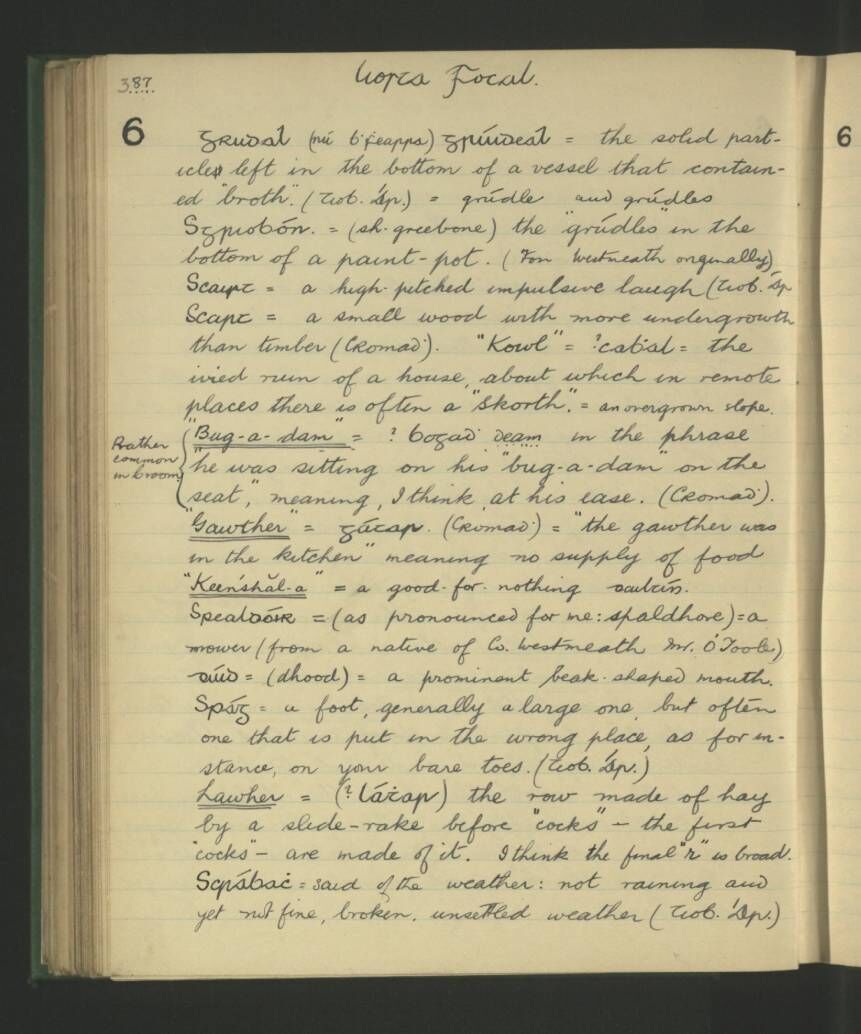 387
Liosta Focal.
6
6
Grudal (nú b'fearra) grúideal = the solid part-
icles left in the bottom of a vessel that contain-
ed "broth". (Tob. 'Ár.) = grúdle and grúdles
Sgriobón. = (sk. greebone) the "grúdles" in the
bottom of a paint-pot. (Fon Westmeath originally)
Scairt = a high-pitched impulsive laugh (Tob. 'Ár
Scart = a small wood with more undergrowth
than timber (Cromad). "Kowl" = ?cabál = the
ivied ruin of a house, about which in remote
places there is often a "skorth". = an overgrown slope.
"Bug-a-dam" = ? bogad deam in the phrase
"he was sitting on his "bug-a-dam" on the
seat," meaning, I think, at his ease. (Cromad).
Rather
common
in Croom
"Gawther" = gátar. (Cromad) = "the gawther was
in the kitchen" meaning no supply of food
"Keenshăl-a" = a good-for-nothing
Spealdóir = (as pronounced for me: spaldhore) = a
mower (from a native of Co. Westmeath Mr. O'Toole)
dúid = (dhood) = a prominent beak-shaped mouth.
Spág = a foot, generally a large one, but often
one that is put in the wrong place, as for in-
stance, on your bare toes. (Tob. 'Ár.)
Lawher = (? láṫar) the row made of hay
by a slide-rake before "cocks" – the first
"cocks" – are made of it. I think the final "r" is broad.
Scrábaċ = said of the weather: not raining and
yet not fine, broken, unsettled weather (Tob. 'Ár.)